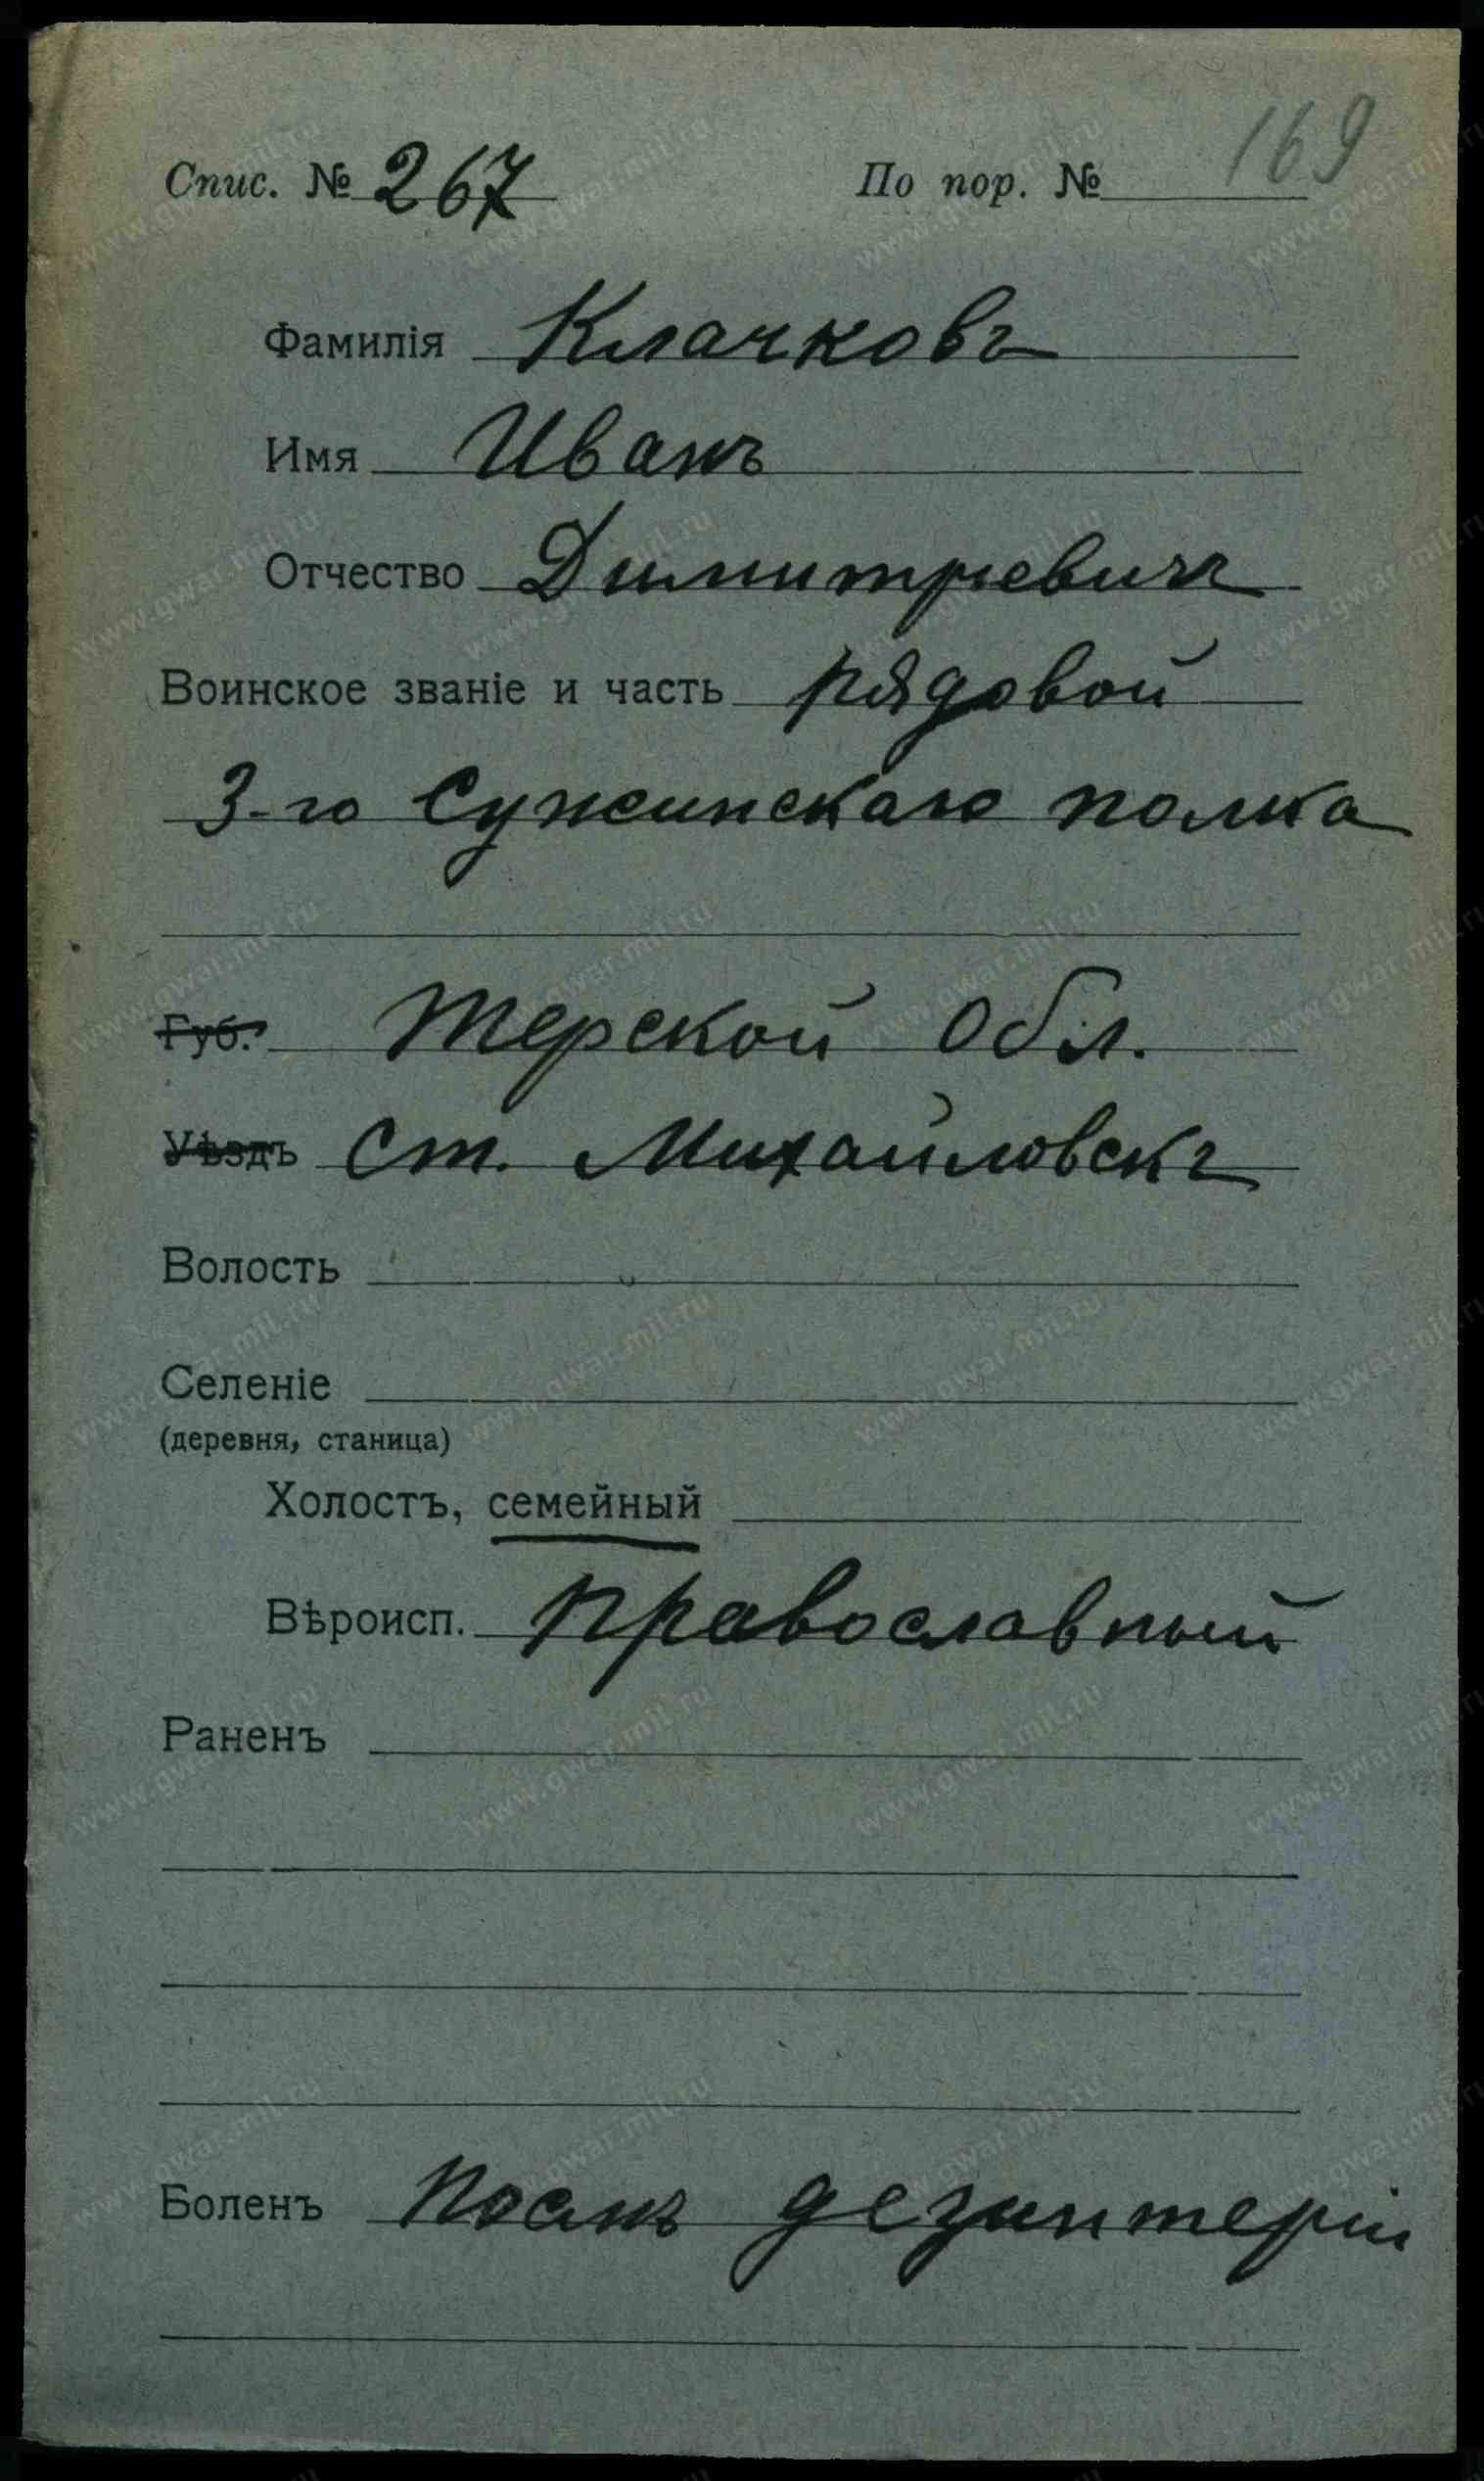 Спис. № 267 По пор. № 169
Фамилія Клачковъ
Имя Иванъ
Отчество Димитревичъ
Воинское званіе и часть рядовой
3-го Сунжинскаго полка
Губ. Терской Обл.
Уѣздъ ст. Михайловскъ
Волость
Селеніе
(деревня, станица)
Холостъ, семейный
Вѣроисп. православный
Раненъ
Боленъ послѣ дезинтеріи